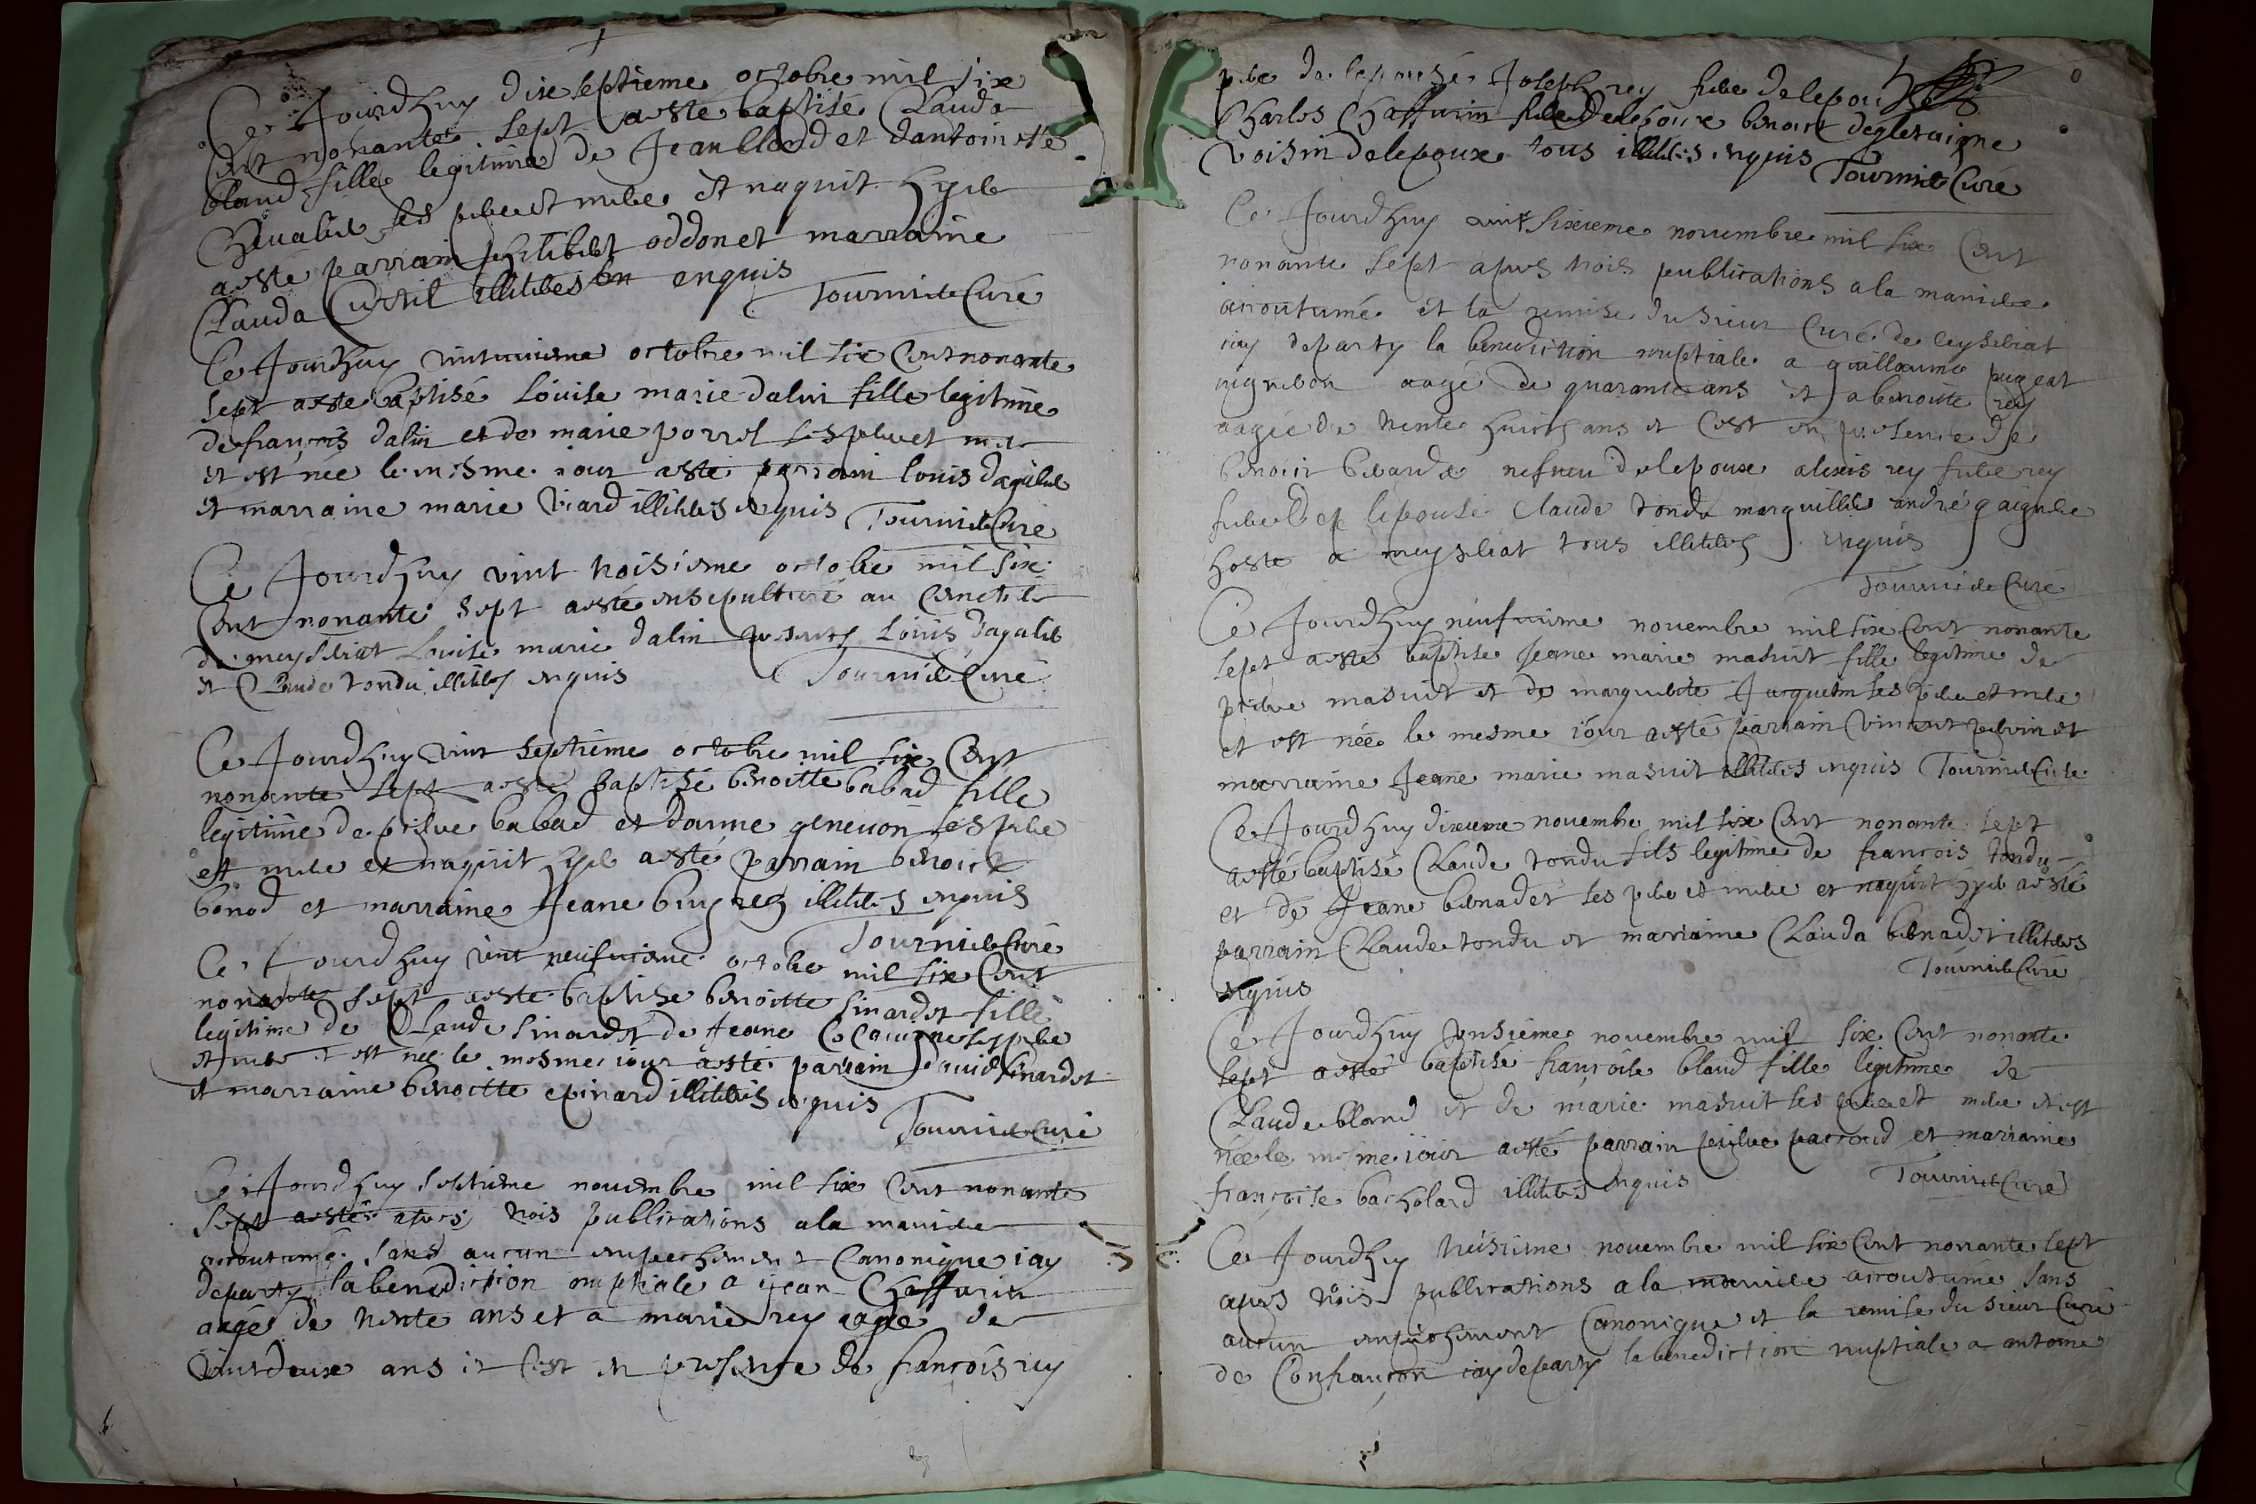 Ce Jourdhuy dixseptieme octobre mil six
Cent nonante sept a esté baptisé Clauda
bland fille legitime de Jean bland et dantoinette
Chevalier ses pere et mere et naquit hyer
a esté parrain philibert oddon et marraine
Clauda Curtil illiteres enquis
Tournier Curé
Ce Jourdhuy vintunieme octobre mil six Cent nonante
sept a esté baptisé Louise marie dalin fille legitime
de françois dalin et de marie porrel ses pere et mere
et est née le mesme iour a esté parrain louis dagalier
et marraine marie Viard illiteres enquis Tournier Curé
Ce Jourdhuy vint troisieme octobre mil six
Cent nonante sept a esté ensepulturé au Cemetiere
de meyseriat Louise marie dalin presents Louis dagalier
et Claude tondu illiteres enquis Tournier Curé
Ce Jourdhuy vint septieme octobre mil six Cent
nonante sept a esté baptisé benoitte babad fille
legitime de pierre babad et danne genevon ses pere
et mere et naquit hyer a esté parrain benoict
bonod et marraine Jeane illiteres enquis
Tournier Curé
Ce Jourdhuy vint neufvieme octobre mil six Cent
nonante sept a esté baptise benoitte sinardet fille
legitime de Claude sinardet de Jeane ses pere
et mere et est née le mesme iour a esté parrain David sinardet
et marraine benoitte epinard illiteres enquis
Tournier Curé
Ce Jourdhuy septieme novembre mil six Cent nonante
sept a esté apres trois publications a la maniere
accoutumé sans aucun empechement Canonique iay
departy la benediction nuptiale a jean Chaffurin
aagé de trente ans et a marie rey agé de
vintdeux ans et Cest en presence de françois rey
pere de lepousé Joseph rey frere de lepousé
Charles Chaffurin frere de lepoux benoict degletaigne
voisin de lepoux tous illiteres enquis
Tournier Curé
Ce Jourdhuy vint sixieme novembre mil six Cent
nonante sept apres trois publications a la maniere
accoutumé et la remise du sieur Curé de ceyseriat
iay departy la benediction nuptiale a guillaume pugeat
vigneron aagé de quarante ans et a benoitte rey
aagée de trente huict ans et Cest en presence de
benoict berard nefveu de lepoux alexis rey frere rey
frere de lepousé Claude tondu marguillier andré gaignere
hoste a meyseriat tous illiteres enquis
Tournier Curé
Ce Jourdhuy neufvieme novembre mil six Cent nonante
sept a esté baptise Jeane marie masuit fille legitime de
pierre masuit et de marguerite Jacquem ses pere et mere
et est née le mesme iour a esté parrain Vincent et
marraine Jeane marie masuit illiteres enquis Tournier Curé
Ce Jourdhuy dixieme novembre mil six Cent nonante sept
a esté baptisé Claude tondu fils legitime de françois tondu
et de Jeane bernadet ses pere et mere et naquit hyer a esté
parrain Claude tondu et marraine Clauda bernadet illiteres
Tournier Curé
enquis
Ce Jourdhuy onsieme novembre mil six Cent nonante
sept a esté baptise françoise bland fille legitime de
Claude bland et de marie masuit ses pere et mere et est
née le mesme iour a esté parrain pierre parroud et marraine
françoise bacholard illiteres enquis Tournier Curé
Ce Jourdhuy treisieme novembre mil six Cent nonante sept
apres trois publications a la maniere accoutumé sans
aucun empechement Canonique et la remise du sieur Curé
de Confrançon iay departy la benediction nuptiale a antoine